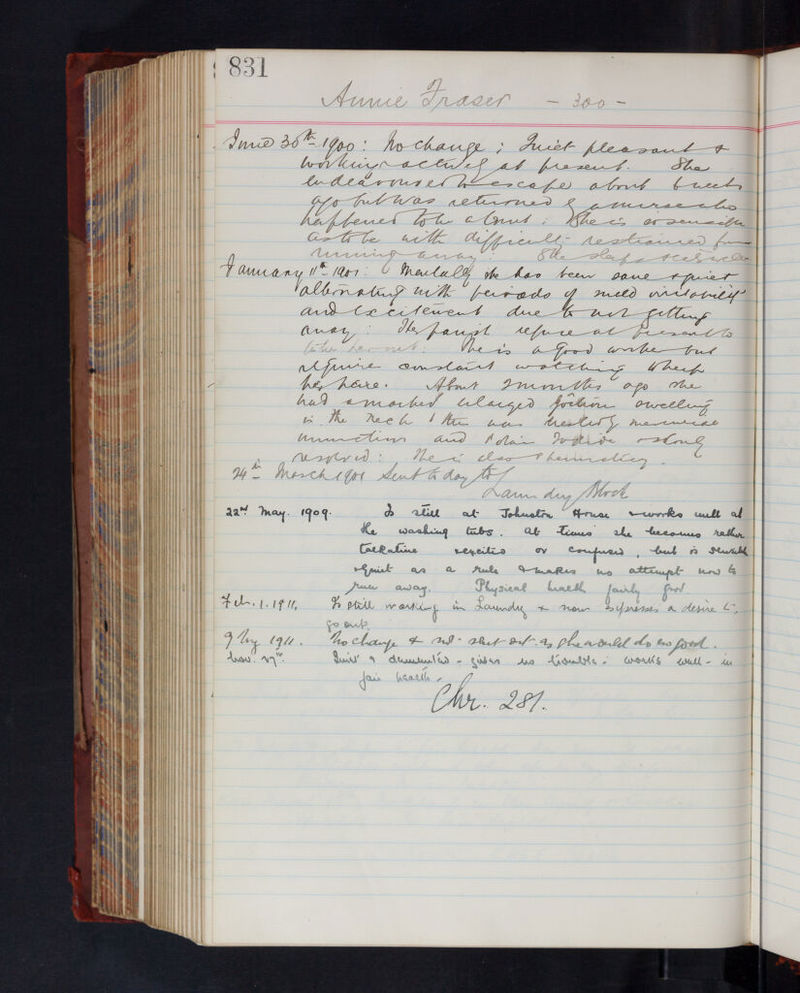 831
Annie Fraser - 300 -
June 30th 1900: No change; Quiet pleasant &
working actively at present. She
endeavoured to escape about 6 weeks
ago but was returned by a nurse who
happened to be about. She is so sensible
as to be with difficulty restrained from
running away. She sleeps & eats well
January 11th 1901: Mentally she has been sane & quiet
alternating with periods of mild irritability
and excitement due to not getting
away: The parish refuse at present to
take her out. She is a good worker but
require constant watching to keep
her here. About 2 months ago she
had a marked enlarged goitrous swelling
in the neck & this was treated by mercurial
inunctions and Potass Iodide & slowly
resolved: She is also menstruating.
24th March 1901 Sent to day to
Laundry Block
22nd May. 1909. Is still at Johnston House & works well at
the washing tubs. At times she becomes rather
talkative & excited or confused, but is sensible
& quiet as a rule & makes no attempt now to
run away. Physical health fairly good.
Feb. 1. 1911. Is still working in Laundry & now expresses a desire to
go out.
1911. No change & not sent out as she would do no good.
Nov. 27th. Quiet & demented - gives no trouble - works well - in
fair health.
Chr. 281.